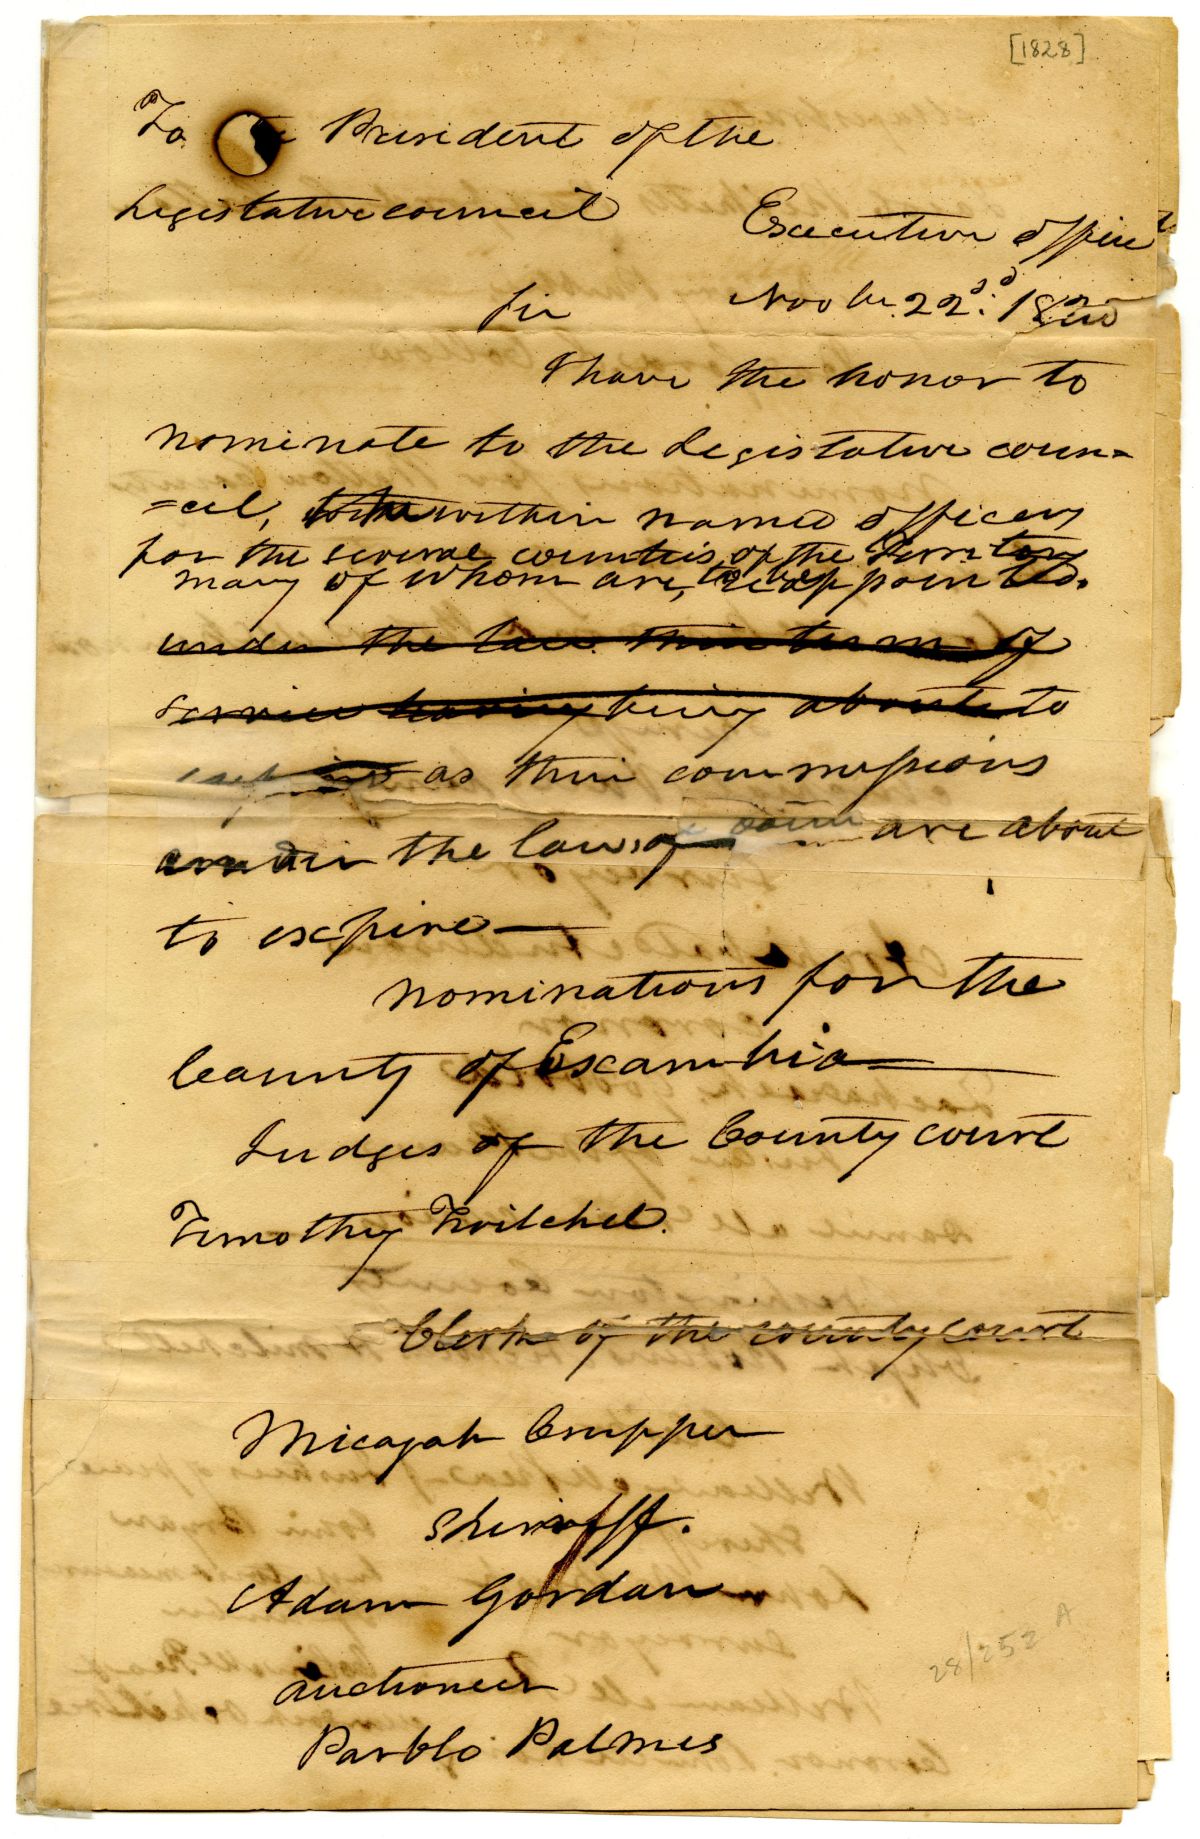 [1828]
To the President of the
Legislative council
Executive office
Novbr. 22d. 18
Sir
I have the honor to
nominate to the Legislative coun=
=cil, within named officers
for the several counties of the Territory
many of whom are, to be reappointed.
under the law their term of
service having being about to
expire as their commissions
under the laws of are about
to expire—
nominations for the
County of Escambia—
Judges of the County court
Timothy Twitchel.
Clerk of the county court
Micajah Crupper
Sheriff.
Adam Gordan
auctioneer
Parblo Palmes
28/252 A